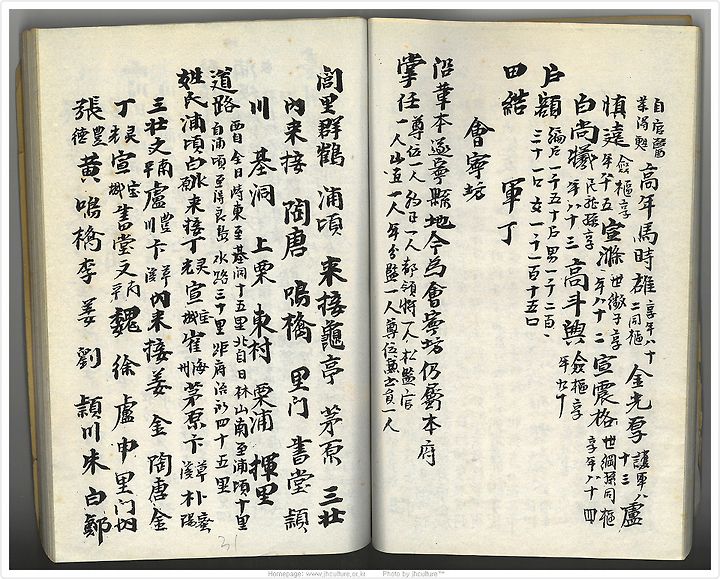 自店醫
高年馬時雄 享年八十二同樞 金光孚 護軍八十三 盧
愼遠 年九十五 僉樞享 宣滌 世徵子享年八十二 宣震格 世綱孫同樞享年八十四
白尚爔 民兆孫享年八十三 高斗輿 僉樞享年九十
戶額 編戶一千五十戶男一千二百三十一口女一千一百十五口
田結 軍丁
會寧坊
沿革本遂寧縣地今爲會寧坊仍屬本府
掌任 尊位一人約正一人都領將一人松監官一人山直一人年分監一人尊位兼書員一人
閭里群鶴 浦頃 來接龜亭 茅原 三壯
內來接 陶唐 鳴橋 里门 書堂 顈
川 基洞 上栗 東村 栗浦 揮里
道路 酉自会日時東至基洞十五里北自日林山南至浦頃十里自浦項至得良島水路三十里距府治所四十五里
姓氏浦頃白 姚來接丁 灵光 宣 宝城 崔 海州 茅原卞 草溪 朴 密陽
三壯文 南平 盧 豊川 卞 草溪 內來接姜 金 陶唐金
丁 灵光 宣 宝城 書堂文 南平 魏 徐 盧 申 里门
張 豊德 黄 鳴橋李 姜 劉 顈川朱 白 鄭
31
Homepage: www.jhculture.or.kr Photo by jhculture™